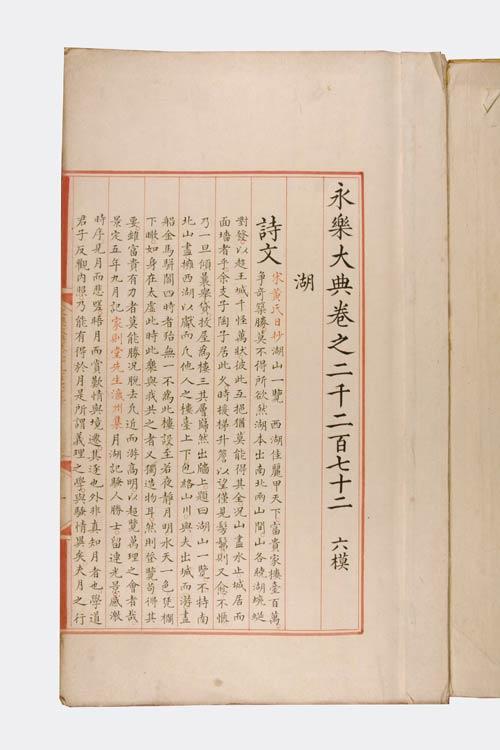 永樂大典卷之二千二百七十二 六模
湖
詩文
宋黃氏日抄湖山一覽 西湖佳麗甲天下富貴家樓臺百萬
爭奇築勝莫不得所欲然湖本出南北兩山間山各繞湖蜿蜒
對發以趨王城千怪萬狀彼此互挹猶莫能得其全況山盡水止城居而
面墻者乎余友于陶子居此久時接梯升簷以望僅見髣髴則又愈不愜
乃一旦傾囊舉貸拔屋為樓三其層巋然出牆上題曰湖山一覽不特南
北山盡擁西湖以獻而凡他人之樓臺上下包絡山川與夫出城而游畫
船金馬駢闐四時者殆無一不為此樓設至若夜靜月明水天一色凭欄
下瞰如身在太虛此時此樂與我共之者又獨造物耳然則登覽苟得其
要雖富貴有力者莫能勝況脫去凡近而游高明以超覽萬理之會者哉
景定五年九月記家則堂先生瀛州集月湖記騷人勝士留連光景感激
時序見月而悲晤月而賞歡情與境遷其逐也外非真知月者也學道
君子反觀內照乃能有得於月是所謂義理之學與騷情異矣夫月之行